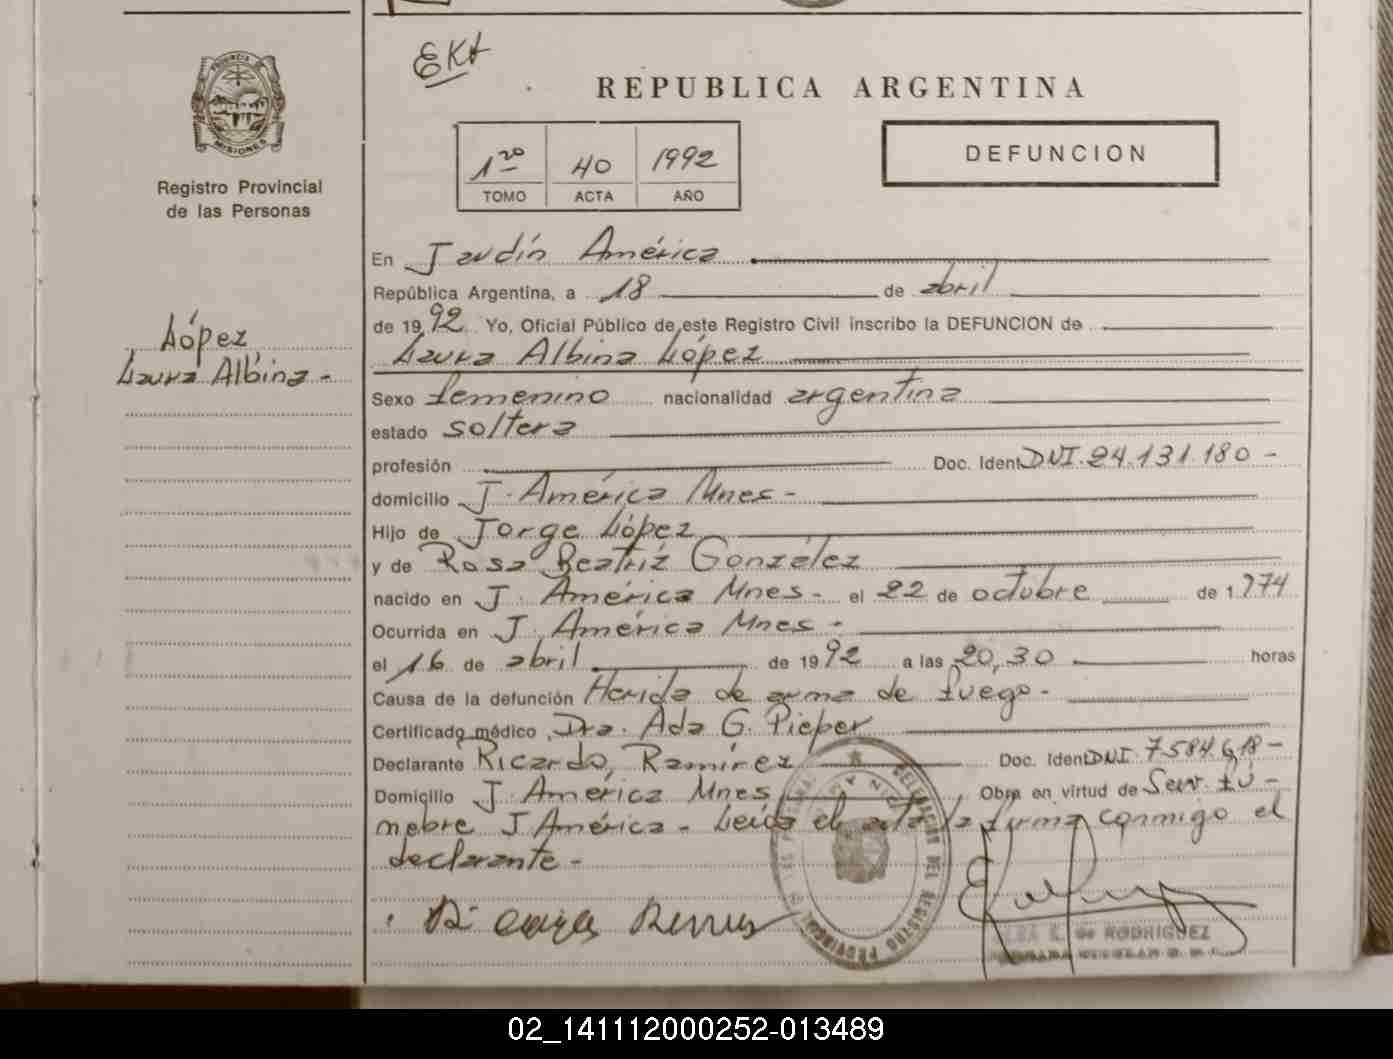 EKA
REPUBLICA ARGENTINA
PROVINCIA DE
MISIONES
Registro Provincial
de las Personas
1ro 40 1992
TOMO ACTA AÑO
DEFUNCION
López
Laura Albina -
En Jardín América
República Argentina, a 18 de abril
de 1992 Yo, Oficial Público de este Registro Civil inscribo la DEFUNCION de
Laura Albina López
Sexo femenino nacionalidad argentina
estado soltera
profesión Doc. Ident. DNI. 24.131.180 -
domicilio J. América Mnes -
Hijo de Jorge López
y de Rosa Beatríz González
nacido en J. América Mnes - el 22 de octubre de 1.974
Ocurrida en J. América Mnes -
el 16 de abril de 1992 a las 20,30 horas
Causa de la defunción Herida de arma de fuego -
Certificado médico Dra. Ada G. Pieper
Declarante Ricardo, Ramírez Doc. Ident. DNI 7.584.618 -
Domicilio J. América Mnes Obra en virtud de Serv. Fú -
nebre J América - Leída el acta la firma conmigo el
declarante -
DELEGACION DEL REGISTRO PROVINCIAL DE LAS PERSONAS
de RODRIGUEZ
02_141112000252-013489